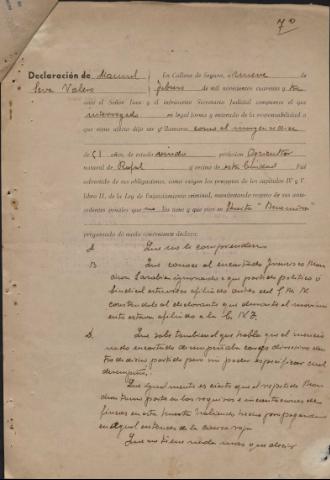 7º
Declaración de Manuel
Leva Valero
En Callosa de Segura, a nueve de
febrero de mil novecientos cuarenta y tres
ante el Señor Juez y el infrascrito Secretario Judicial compareció el que
interrogado en legal forma y enterado de la responsabilidad a
que viene afecto dijo ser y llamarse como al margen se dice
de 51 años, de estado viudo profesión Agricultor
natural de Rafal y vecino de esta Ciudad Fué
advertido de sus obligaciones, como exigen los preceptos de los capítulos IV y V
libro II, de la Ley de Enjuiciamiento criminal, manifestando respecto de sus ante-
cedentes penales que no los tiene y que vive en Huerta
preguntado de modo conveniente declara:
A Que no le comprenden
B. Que conoce al encartado
ignorando a que partido político ó
sindical estuviese afiliado antes del G. M. N.
constándole al declarante que durante el movimi-
ento estuvo afiliado a la C. N. T.
D. Que solo también que habla que el mencio-
nado encartado desempeñaba cargo directivo den-
tro de dicho partido pero sin poder especificar cual
desempeñó.
Que igualmente es cierto que el repetido
tomó parte en los registros e incautaciones de
fincas en esta huerta habiendo hecho propaganda
en aquel entonces de la causa roja
Que no tiene nada mas que decir